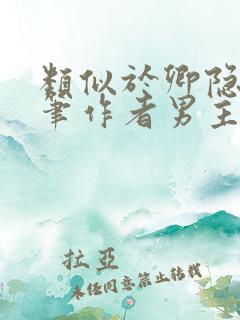 類似於卿隐
筆作者男主
拉亞
未经同意禁止转载